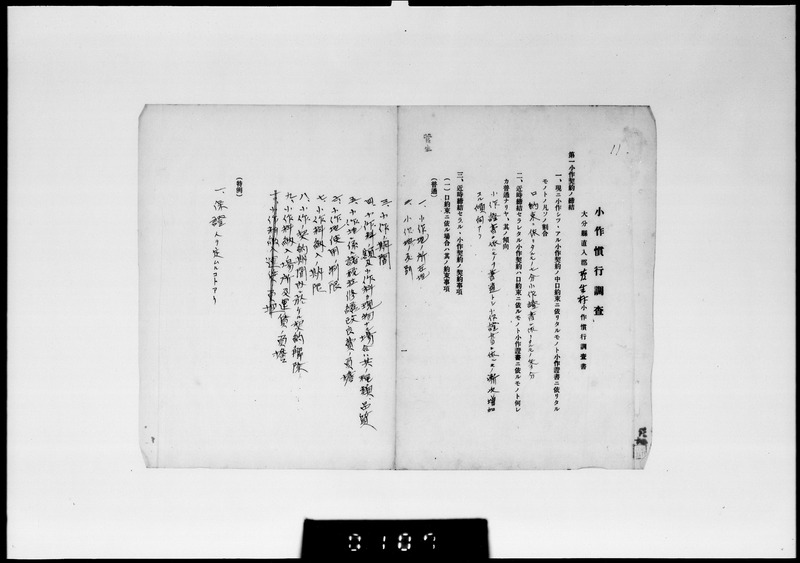 11.
小作慣行調査
大分縣直入郡菅生村小作慣行調査書
第一小作契約ノ締結
一、現ニ小作シツヽアル小作契約ノ中口約束ニ依リタルモノト小作證書ニ依リタル
モノトノ凡ソノ割合
口約束ニ依リタルモノ 小作證書ニ依リタルモノ
二、近時締結セラレタル小作契約ハ口約束ニ依ルモノト小作證書ニ依ルモノト何レ
カ普通ナリヤ、其ノ傾向
小作證書ニ依ルモノ普通トシ小作證書ニ依ルモノ漸次増加
スル傾向ナリ
三、近時締結セラルヽ小作契約ノ契約事項
(一)口約束ニ依ル場合ハ其ノ約束事項
(普通)
菅生
一、小作地ノ所在地
二、小作地ノ
三、小作期間
四、小作料ノ額及小作料ノ現物ノ場合ハ其ノ種類、品質
五、小作地ニ係ル諸税及修繕改良費ノ負擔
六、小作地使用ノ制限
七、小作料納入ノ期限
八、小作契約期間中ニ於ケル契約解除
九、小作料納入場所及運賃ノ負擔
(特例)
一、保證人ヲ定ムルコトアリ
0187